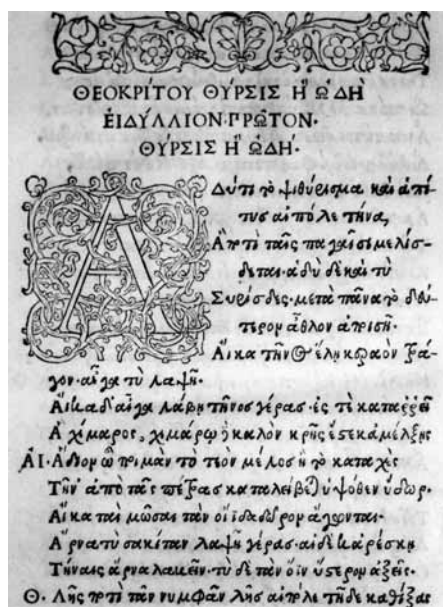 ΘΕΟΚΡΙΤΟΥ ΘΥΡΣΙΣ Ἢ ΩΔΗ
ἘΙΔΥΛΛΙΟΝ ΠΡΩΤΟΝ·
ΘΥΡΣΙΣ Ἢ ΩΔΗ·
ΑΔύ τι τὸ ψιθύρισμα καὶ ἁ πί-
τυς αἰπόλε τήνα,
Ἃ ποτὶ ταῖς παγαῖσι μελίσ-
δεται· ἁδὺ δὲ καὶ τὺ
Συρίσδες· μετὰ πᾶνα τὸ δεύ-
τερον ἆθλον ἀποισῇ·
Αἴκα τῆνος ἕλῃ κεραὸν τρά-
γον· αἶγα τὺ λαψῇ·
Αἴκα δ' αἶγα λάβῃ τῆνος γέρας· ἐς τὲ καταῤῥεῖ
Ἁ χίμαρος, χιμάρω δὲ καλὸν κρῆς ἔς τε κ' ἀμέλξῃς
ΑΙ· Ἅδιον ὦ ποιμὰν τὸ τεὸν μέλος ἢ τὸ καταχὲς
Τῆν' ἀπὸ τᾶς πέτρας καταλείβεται ὑψόθεν ὕδωρ·
Αἴκα ταὶ μῶσαι τὰν οἴϊδα δῶρον ἄγωνται·
Ἄρνα τὺ σακίταν λαψῇ γέρας· αἰ δέ κ' ἀρέσκῃ
Τήναις ἄρνα λαβεῖν· τὺ δὲ τὰν ὄϊν ὕστερον ἀξεῖς·
Θ· Λῇς ποτὶ τᾶν νυμφᾶν λῇς αἰπόλε τῇδε καθίξας